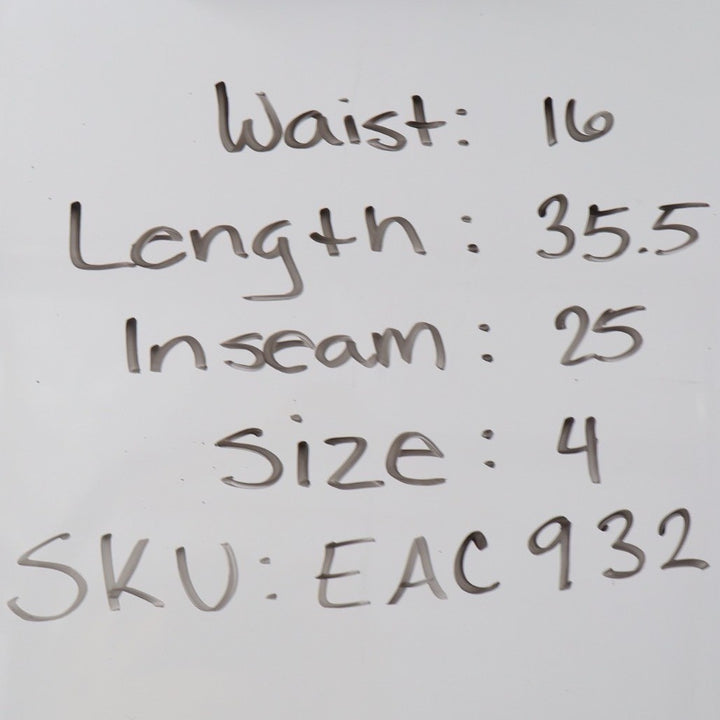 Waist: 16
Length: 35.5
Inseam: 25
Size: 4
SKU: EAC 932